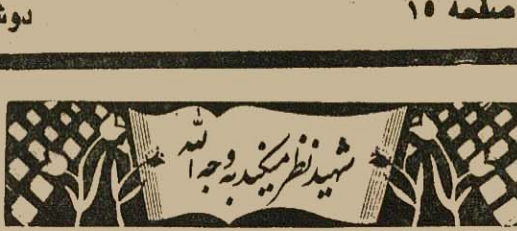 صفحه ۱۵
دوش
شهید نظر میکند به وجه الله